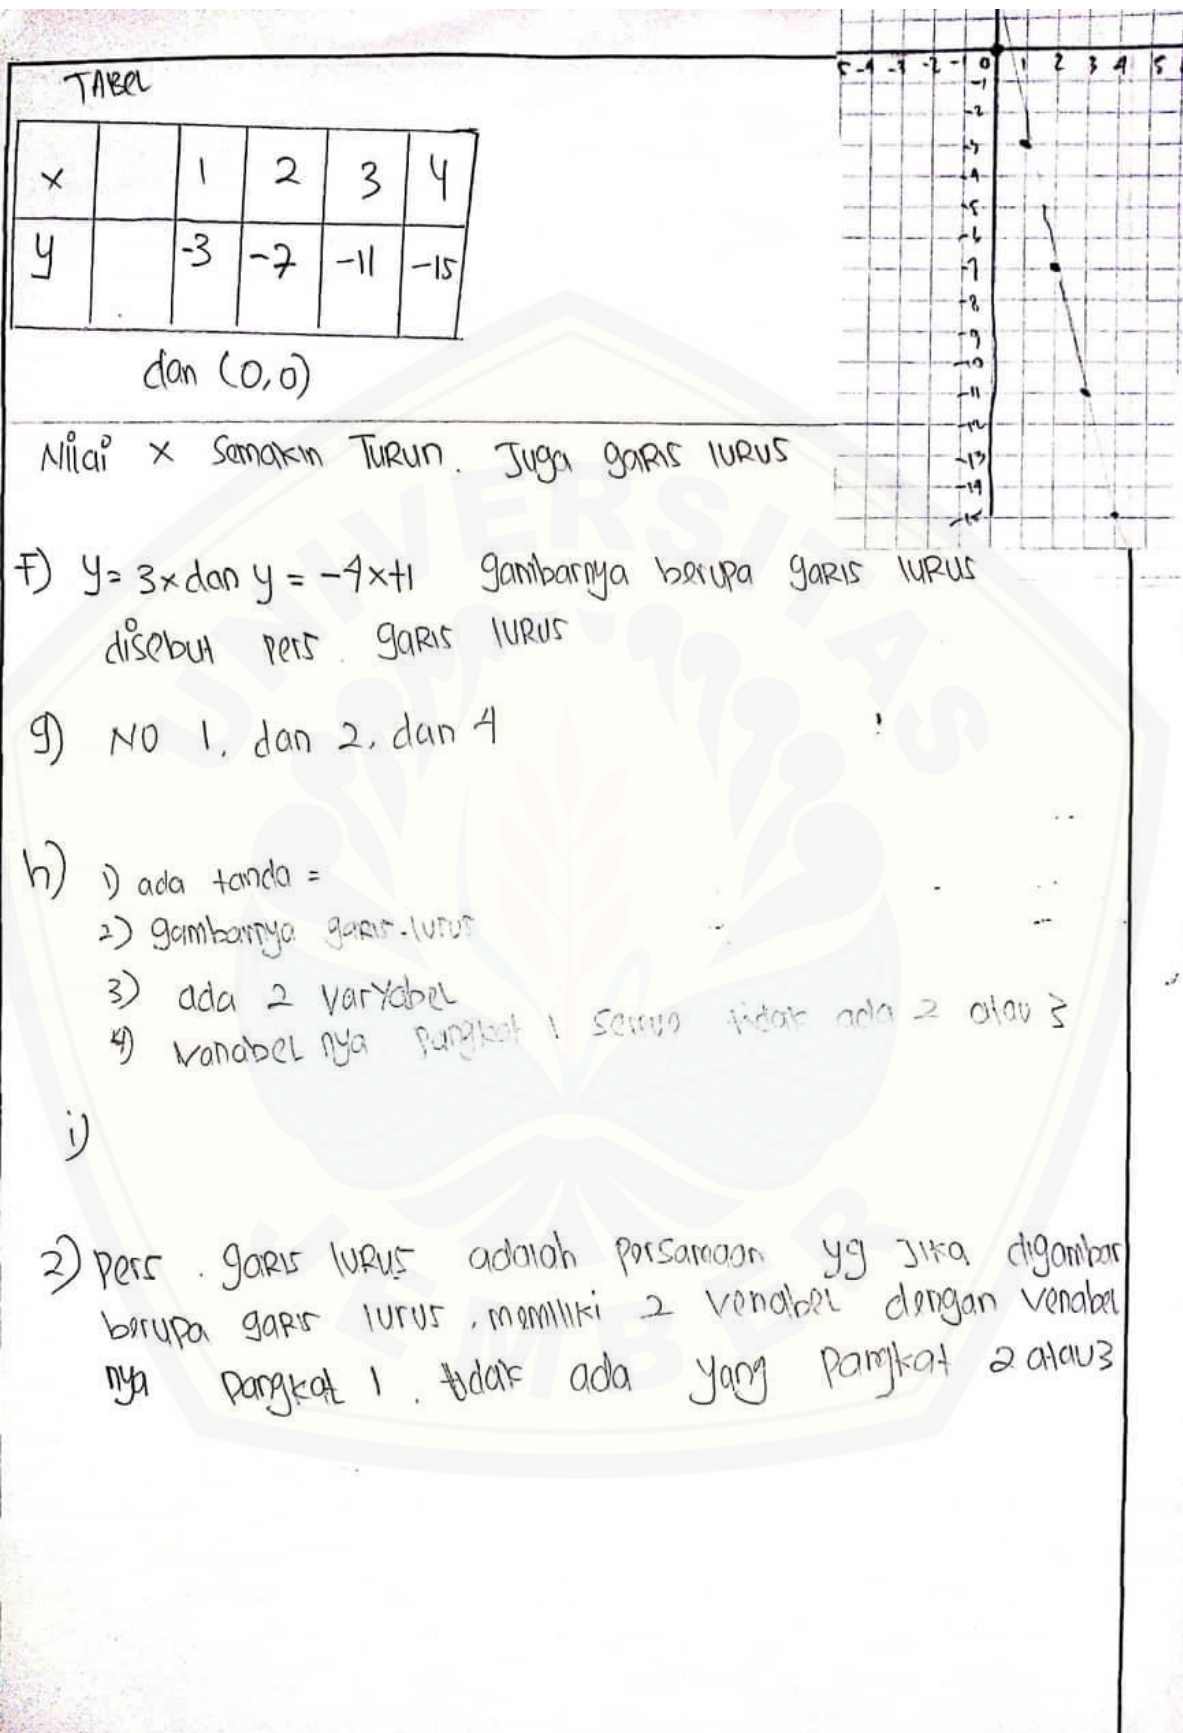 TABEL
x 1 2 3 4
y -3 -7 -11 -15
dan (0,0)
5 -4 -3 -2 -1 0 1 2 3 4 5
-1
-2
-3
-4
-5
-6
-7
-8
-9
-10
-11
-12
-13
-14
-15
Nilai x Semakin Turun. Juga garis lurus
F) y = 3x dan y = -4x+1 gambarnya berupa garis lurus
disebut pers. garis lurus
g) NO 1, dan 2, dan 4
h) 1) ada tanda =
2) gambarnya garis lurus
3) ada 2 varyabel
4) variabel nya pangkat 1 semua tidak ada 2 atau 3
i)
2) pers. garis lurus adalah persamaan yg jika digambar
berupa garis lurus, memiliki 2 venabel dengan venabel
nya pangkat 1. tidak ada yang pangkat 2 atau 3
UNIVERSITAS
JEMBER